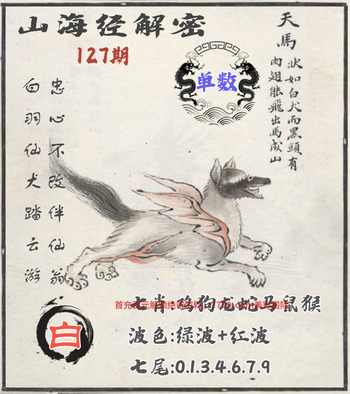 山海经解密
127期
单数
天馬
狀如白犬而黑頭有
肉翅能飛出馬成山
忠心不改伴仙翁
白羽仙犬踏云游
白
七肖:鸡狗龙蛇马鼠猴
波色:绿波+红波
七尾:0.1.3.4.6.7.9